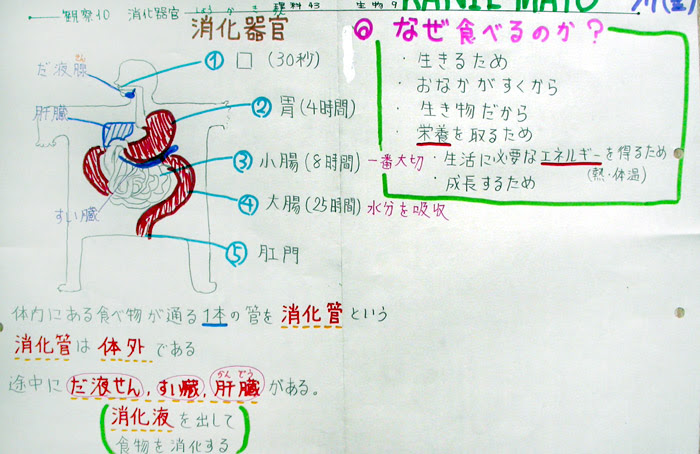 観察10 消化器官 しょうかきかん 理科43 生物9 KANIE MAYU
消化器官
だ液腺
せん
肝臓
すい臓
① 口 (30秒)
② 胃 (4時間)
③ 小腸 (8時間) 一番大切
④ 大腸 (25時間) 水分を吸収
⑤ 肛門
Q なぜ食べるのか?
・生きるため
・おなかがすくから
・生き物だから
・栄養を取るため
・生活に必要なエネルギーを得るため
(熱・体温)
・成長するため
体内にある食べ物が通る1本の管を消化管という
消化管は体外である
かんぞう
途中にだ液せん,すい臓,肝臓がある。
消化液を出して
食物を消化する